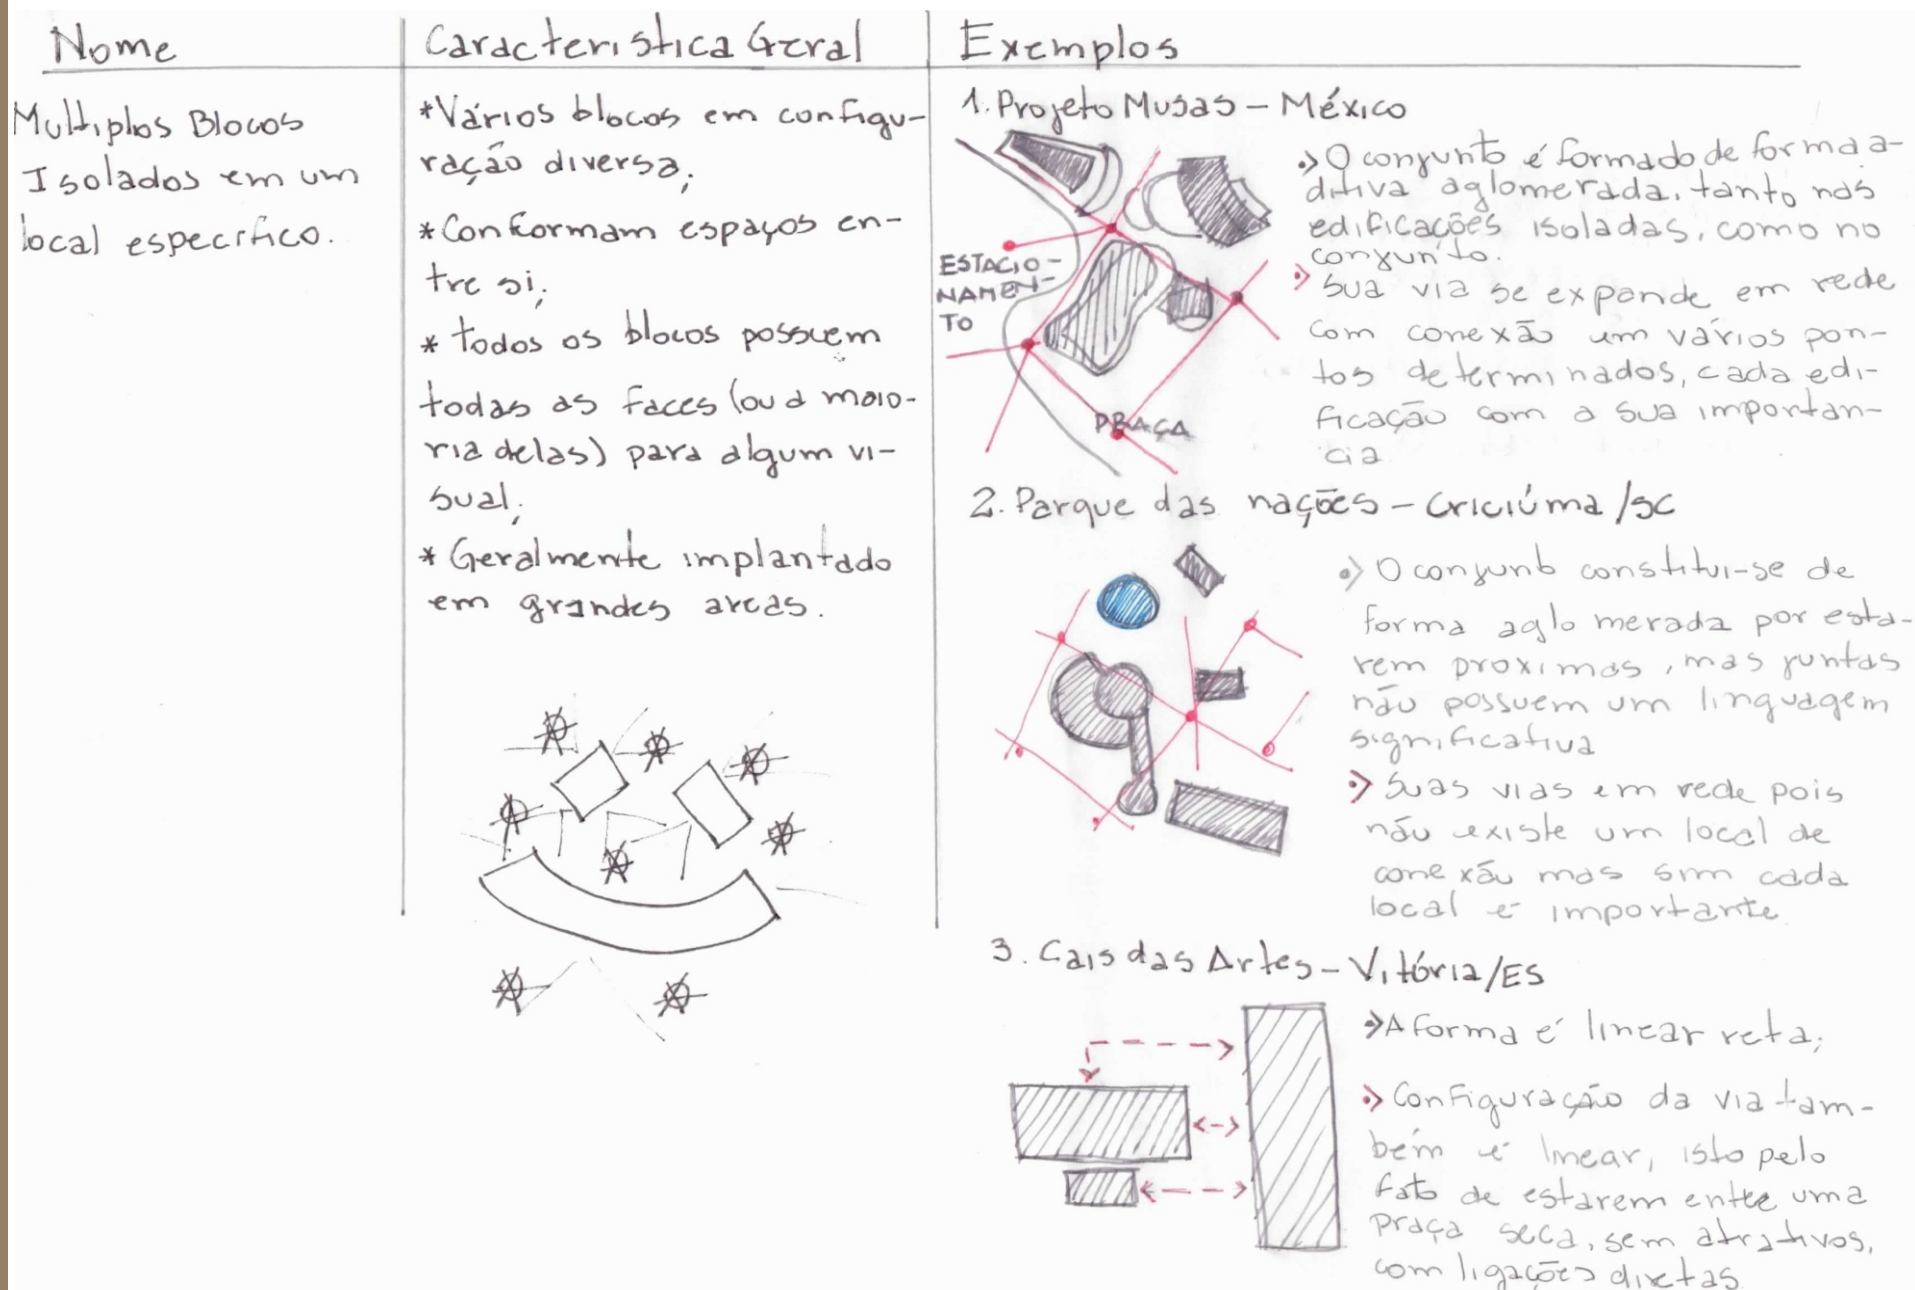 Nome
Caracteristica Geral
Exemplos
Multiplos Blocos
Isolados em um
local especifico.
*Vários blocos em configu-
ração diversa;
*Conformam espaços en-
tre si;
* todos os blocos possuem
todas as faces (ou a maio-
ria delas) para algum vi-
sual;
* Geralmente implantado
em grandes areas.
1. Projeto Musas - México
ESTACIO-
NAMEN-
TO
PRAÇA
O conjunto é formado de forma a-
ditiva aglomerada, tanto nas
edificações isoladas, como no
conjunto.
Sua via se expande em rede
com conexão em vários pon-
tos determinados, cada edi-
ficação com a sua importan-
cia
2. Parque das nações - Criciúma/SC
O conjunto constitui-se de
forma aglomerada por esta-
rem proximas, mas juntas
não possuem um linguagem
significativa
Suas vias em rede pois
não existe um local de
conexão mas sim cada
local é importante.
3. Cais das Artes - Vitória/ES
A forma é linear reta;
Configuração da via tam-
bém é linear, isto pelo
fato de estarem entre uma
praça seca, sem atrativos,
com ligações diretas.